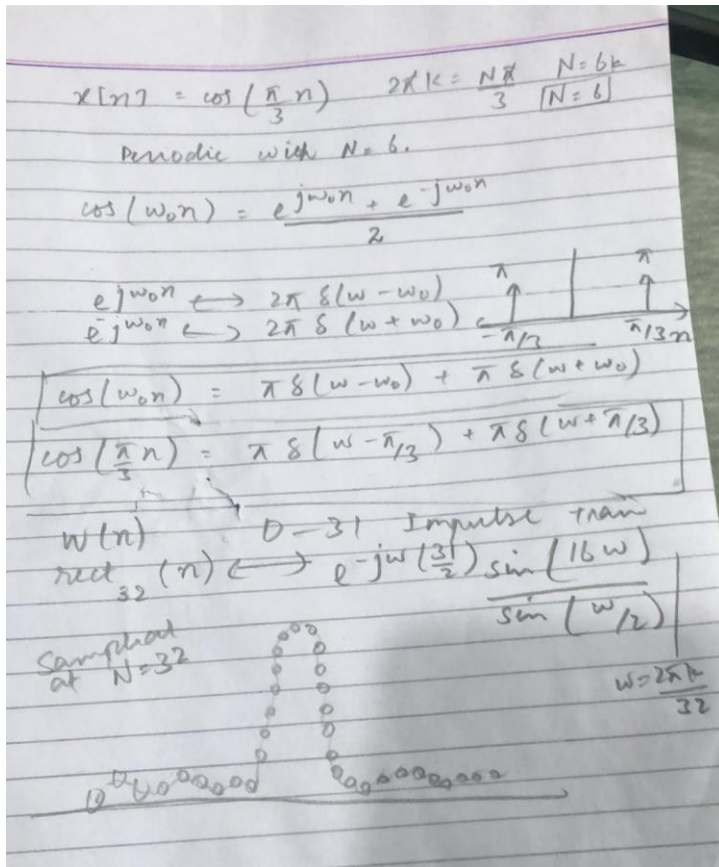 x[n] = cos(π/3 n) 2πk = Nπ/3 N = 6k
N = 6
Periodic with N = 6.
cos(ω₀n) = (e^jω₀n + e^-jω₀n)/2
e^jω₀n ↔ 2π δ(ω-ω₀)
e^-jω₀n ↔ 2π δ(ω+ω₀)
π π
-π/3 π/3 n
cos(ω₀n) = π δ(ω-ω₀) + π δ(ω+ω₀)
cos(π/3 n) = π δ(ω-π/3) + π δ(ω+π/3)
W(n) 0-31 Impulse train
rect₃₂(n) ↔ e^-jω(31/2) sin(16ω)/sin(ω/2) |
ω = 2πk/32
Sampled
at N=32